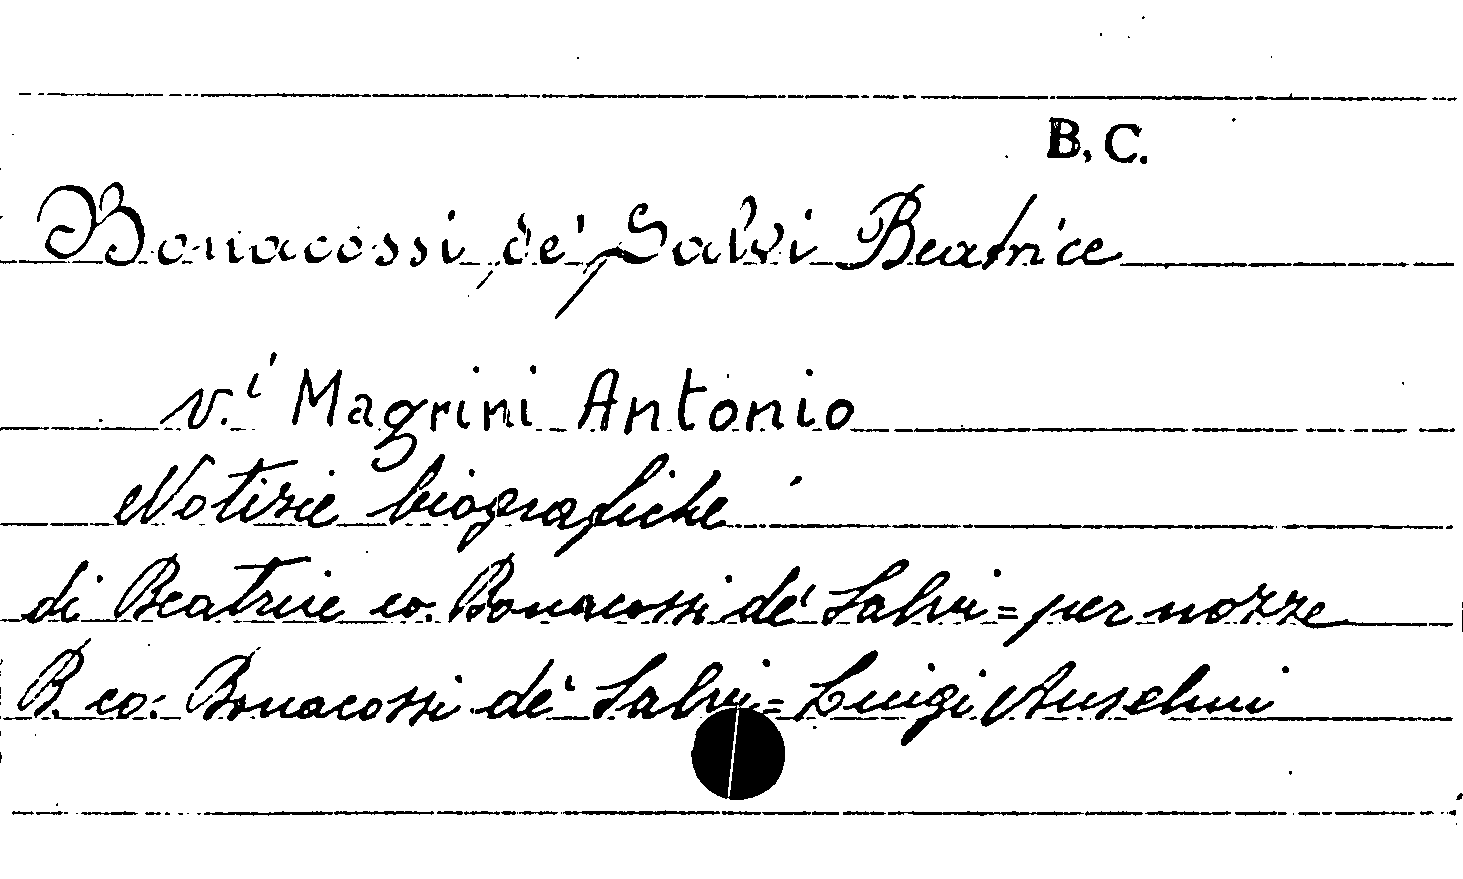 B. C.
Bonacossi de' Salvi Beatrice
v.i Magrini Antonio
Notizie biografiche
di Beatrice co. Bonacossi de' Salvi = per nozze
B. co: Bonacossi de' Salvi = Luigi Anselmi